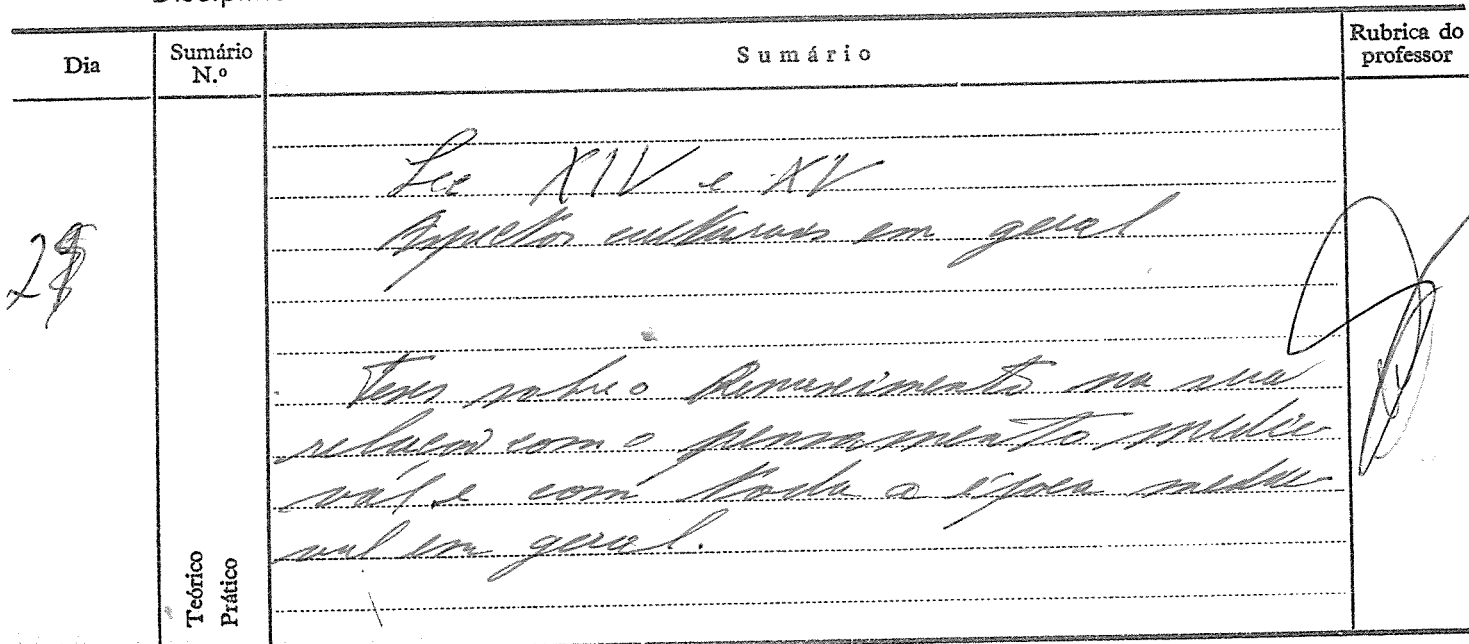 Dia
Sumário N.º
Sumário
Rubrica do professor
XIV e XV
Aspectos culturais em geral
Teses sobre o Renascimento na sua
relação com o pensamento medie
val e com toda a época medie
val em geral.
Teórico
Prático